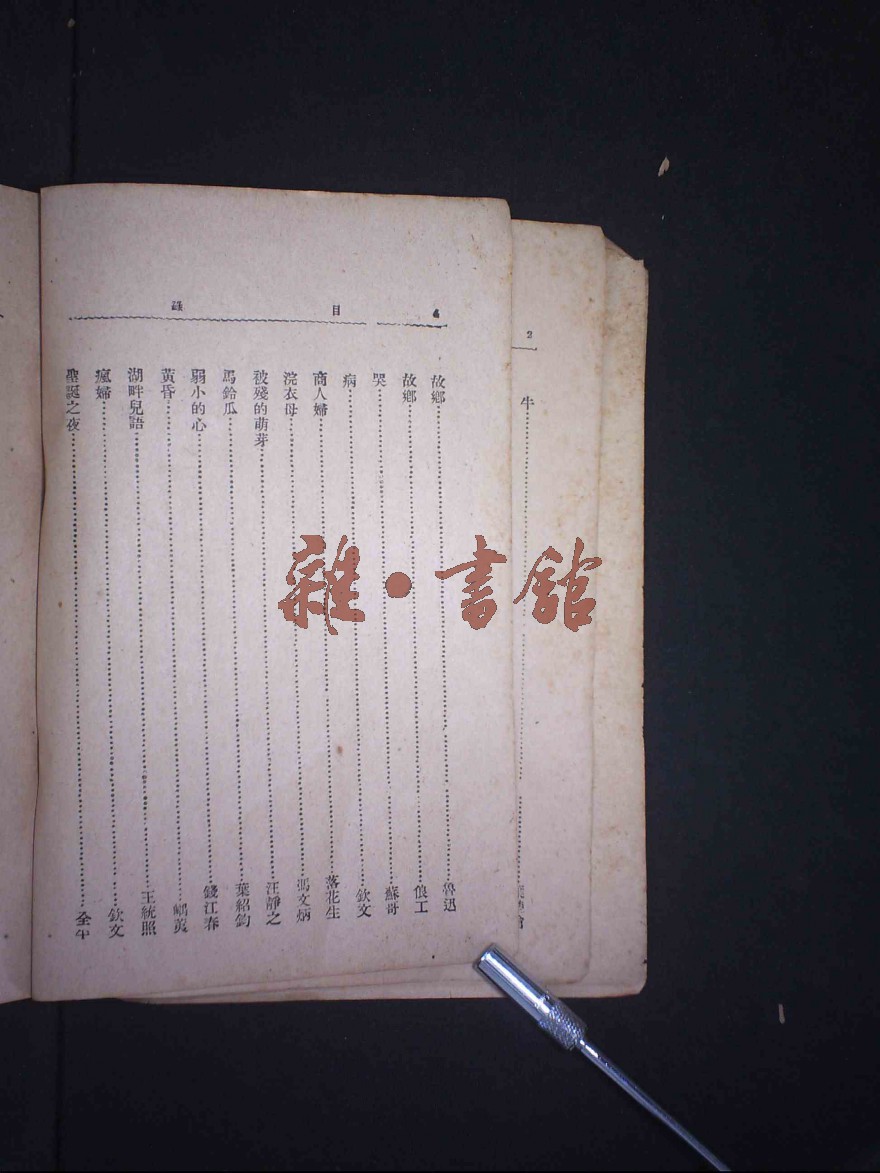 2
牛
4 目錄
故鄉 魯迅
故鄉 俍工
哭 蘇哥
病 欽文
商人婦 落花生
浣衣母 馮文炳
被殘的萌芽 汪靜之
馬鈴瓜 葉紹鈞
弱小的心 錢江春
黃昏
湖畔兒語 王統照
瘋婦 欽文
聖誕之夜 全平
雜•書館